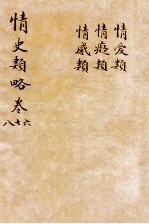 情愛類
情癡類
情感類
情史類略卷
六七八